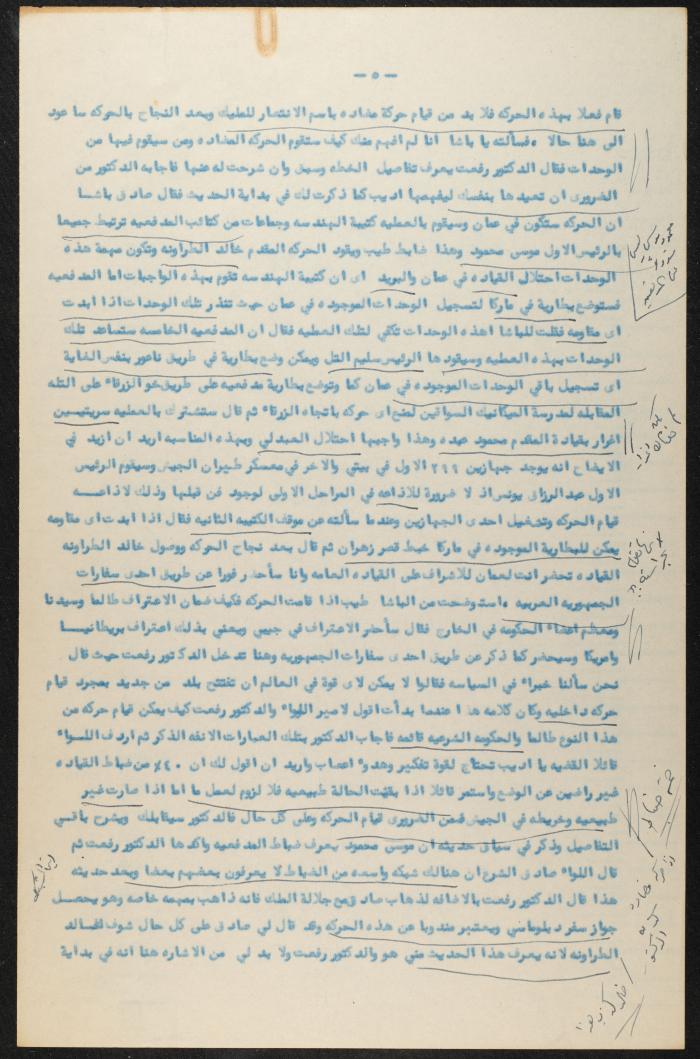 - ٥ -
قام فعلا بهذه الحركه فلا بد من قيام حركة مضاده باسم الانتصار للمليك وبعد النجاح بالحركه ساعود
الى هنا حالا ٠ فسألته يا باشا انا لم افهم منك كيف ستقوم الحركه المضاده ومن سيقوم فيها من
الوحدات فقال الدكتور رفعت يعرف تفاصيل الخطه وسبق وان شرحت له عنها فاجابه الدكتور من
الضروري ان تعيدها بنفسك ليفهمها اديب كما ذكرت لك في بداية الحديث فقال صادق باشا
ان الحركه ستكون في عمان وسيقوم بالعمليه كتيبة الهندسه وجماعات من كتائب المدفعيه ترتبط جميعا
بالرئيس الاول موسى محمود وهذا ضابط طيب ويقود الحركه المقدم خالد الطراونه وتكون مهمة هذه
الوحدات احتلال القياده في عمان والبريد اى ان كتيبة الهندسه تقوم بهذه الواجبات اما المدفعيه
فستوضع بطارية في ماركا لتسجيل الوحدات الموجوده في عمان حيث تنذر تلك الوحدات اذا ابدت
اى مقاومه فقلت للباشا اهذه الوحدات تكفي لتلك العمليه فقال ان المدفعيه الخامسه ستساعد تلك
الوحدات بهذه العمليه وسيقودها الرئيس سليم التل ويمكن وضع بطارية في طريق ناعور بنفس الغاية
اى تسجيل باقي الوحدات الموجوده في عمان كما وتوضع بطارية مدفعيه على طريق خو الزرقاء على التله
المقابله لمدرسة الميكانيك السواقين لمنع اى حركه باتجاه الزرقاء ثم قال ستشترك بالعمليه سريتيسن
اغرار بقيادة المقدم محمود عبده وهذا واجبها احتلال العبدلي وبهذه المناسبه اريد ان ازيد في
الايضاح انه يوجد جهازين ٢٩٩ الاول في بيتي والاخر في معسكر طيران الجيش وسيقوم الرئيس
الاول عبد الرزاق يونس اذ لا ضرورة للاذاعه في المراحل الاولى لوجود فن قبلها وذلك لاذاعـــه
قيام الحركه وتشغيل احدى الجهازين وعندما سألته عن موقف الكتيبه الثانيه فقال اذا ابدت اى مقاومه
يمكن للبطارية الموجوده في ماركا خبط قصر زهران ثم قال بعد نجاح الحركه ووصول خالد الطراونه
القياده تحضر انت لعمان للاشراف على القياده العامه وانا سأحضر فورا عن طريق احدى سفارات
الجمهوريه العربيه ٠ واستوضحت من الباشا طيب اذا قامت الحركه فكيف ضمان الاعتراف طالما وسيدنا
ومعظم اعضاء الحكومه في الخارج فقال سأحضر الاعتراف في جيبي ويعني بذلك اعتراف بريطانيـــا
وامريكا وسيحضر كما ذكر عن طريق احدى سفارات الجمهوريه وهنا تدخل الدكتور رفعت حيث قال
نحن سألنا خبراء في السياسه فقالوا لا يمكن لاى قوة في العالم ان تفتتح بلد من جديد بمجرد قيام
حركه داخليه وكان كلامه هذا عندما بدأت اقول لامير اللواء والدكتور رفعت كيف يمكن قيام حركه من
هذا النوع طالما والحكومه الشرعيه قائمه فاجاب الدكتور بتلك العبارات الانفه الذكر ثم اردف اللـــواء
قائلا القضيه يا اديب تحتاج لقوة تفكير وهدوء اعصاب واريد ان اقول لك ان ٤٠٪ من ضباط القياده
غير راضين عن الوضع واستمر قائلا اذا بقيت الحالة طبيعيه فلا لزوم لعمل ما اما اذا صارت غير
طبيعيه وخربطه في الجيش فمن الضرورى قيام الحركه وعلى كل حال فالدكتور سيقابلك ويشرح باقـي
التفاصيل وذكر في سياق حديثه ان موسى محمود يعرف ضباط المدفعيه واكدها الدكتور رفعت ثم
قال اللواء صادق الشرع ان هنالك شبكه واسعه من الضباط لا يعرفون بعضهم بعضا وبعد حديثه
هذا قال الدكتور رفعت بالاضافه لذهاب صادق مع جلالة الملك فانه ذاهب بمهمه خاصه وهو يحصـل
جواز سفر دبلوماسي ويعتبر مندوبا عن هذه الحركه وقد قال لي صادق على كل حال شوف الخـالد
الطراونه لانه يعرف هذا الحديث مني هو والدكتور رفعت ولا بد لي من الاشاره هنا انه في بداية